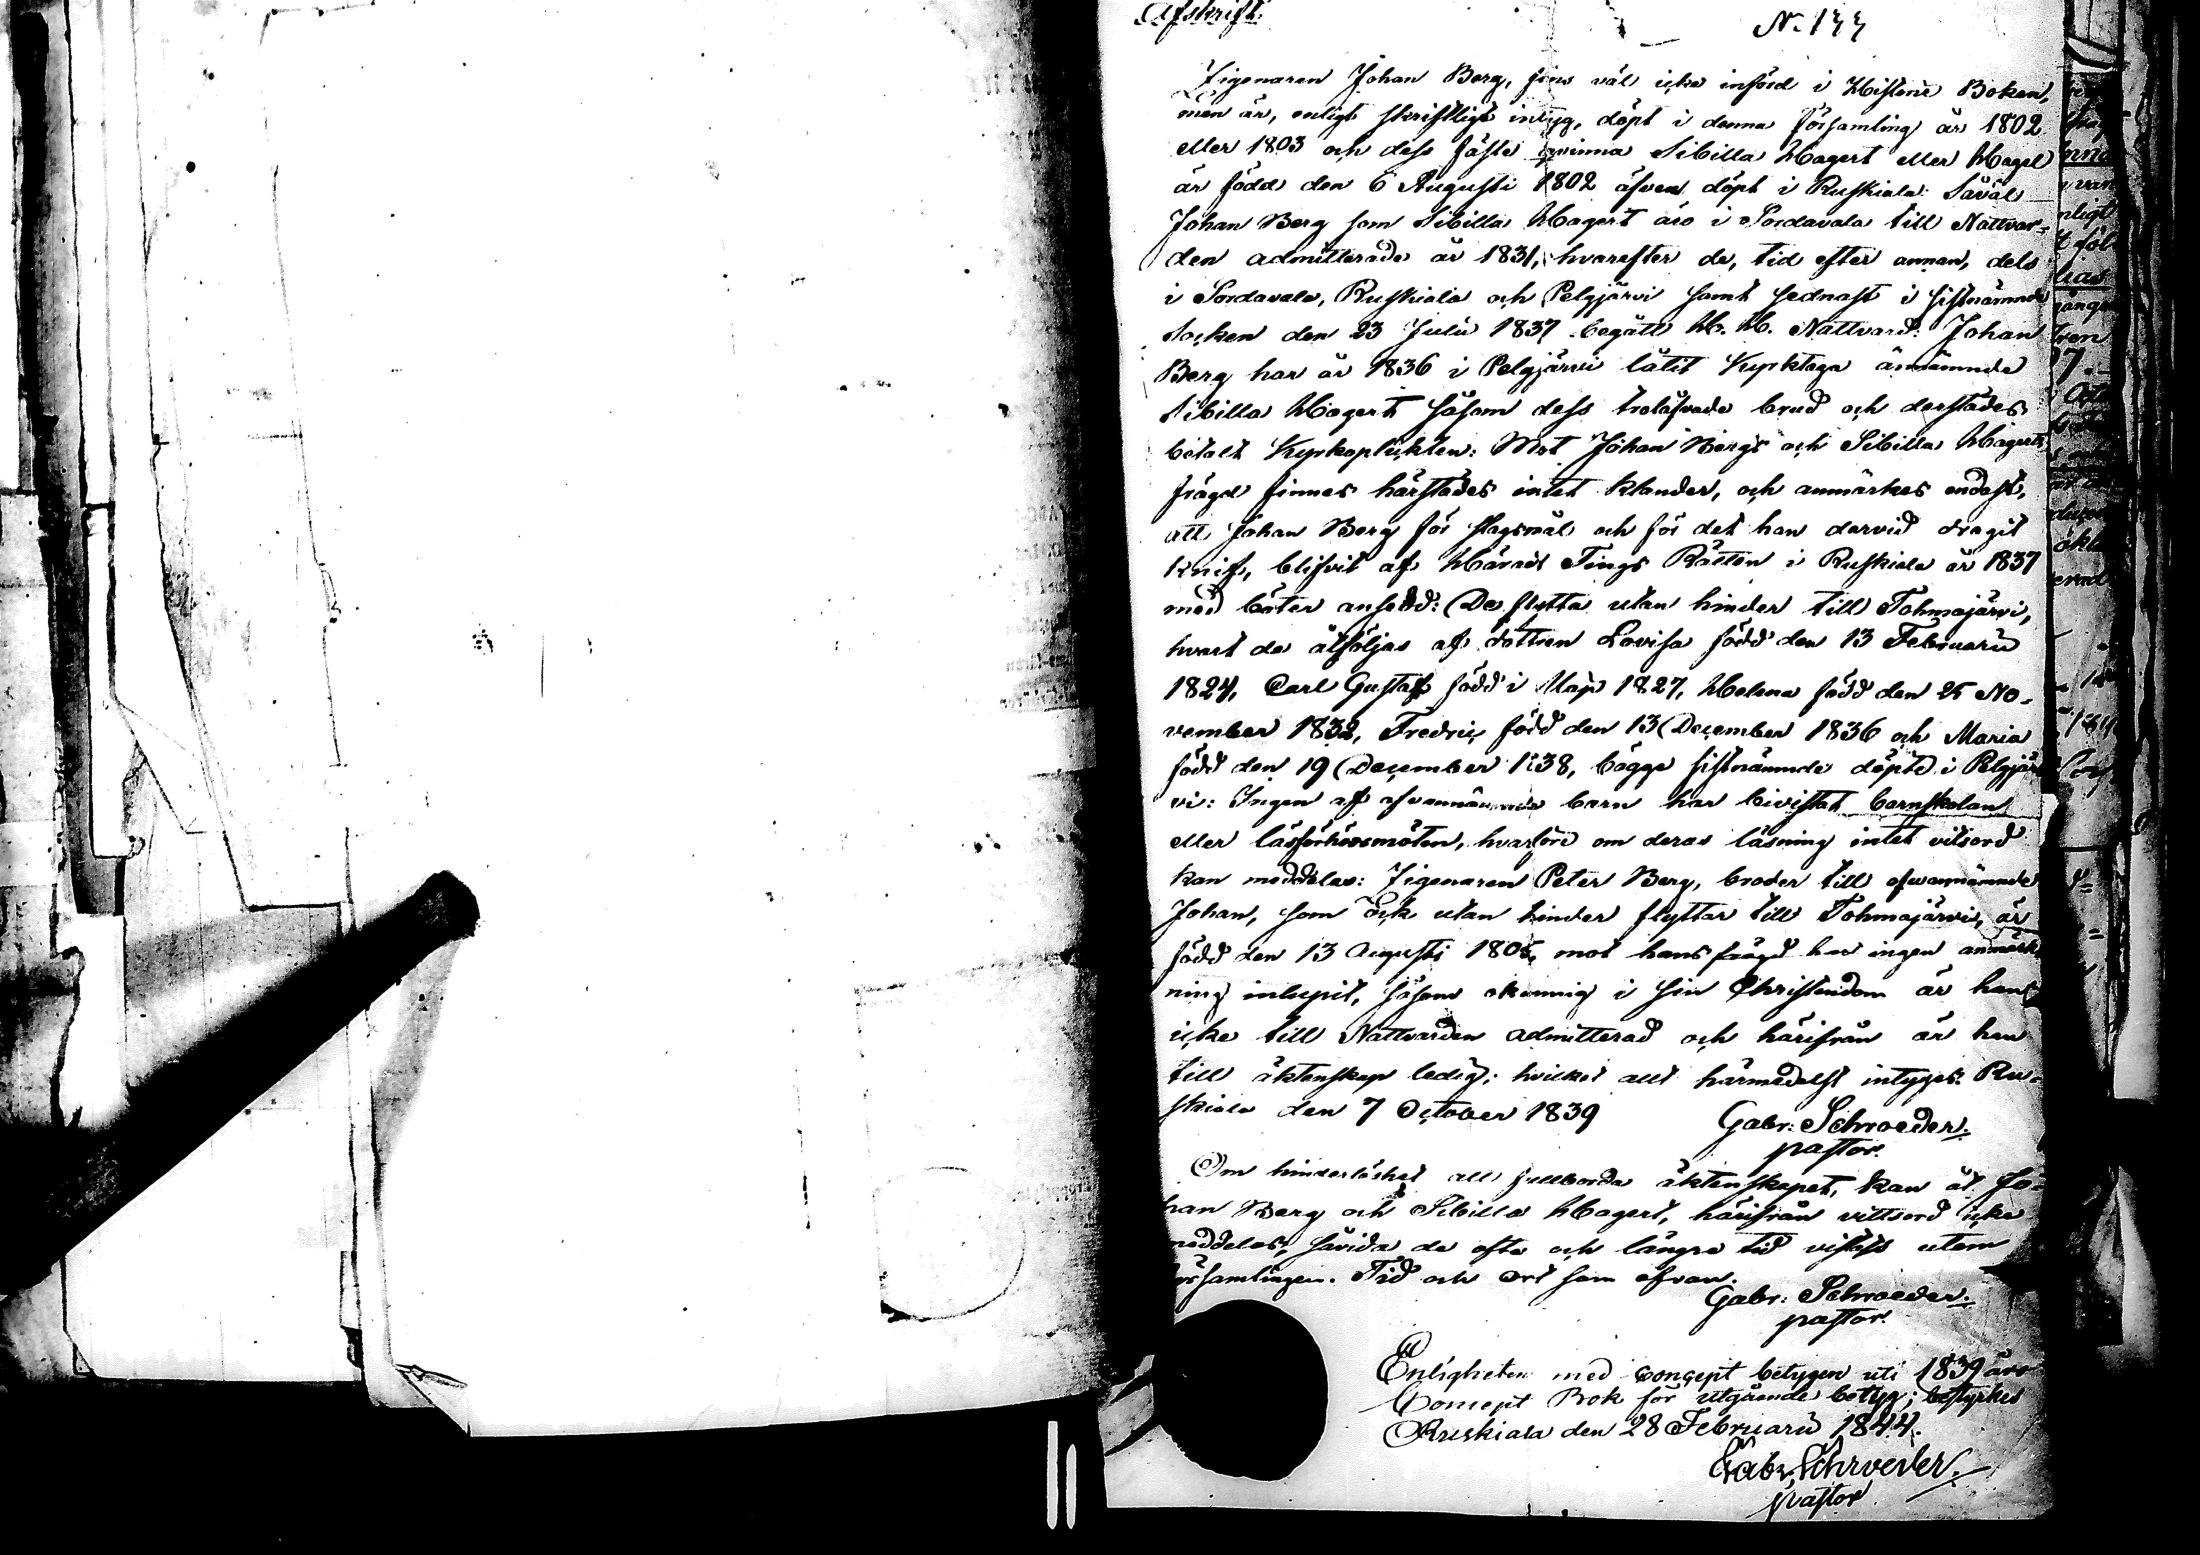 Afskrift.
N. 144
Zigenaren Johan Berg, fins väl icke införd i Historie Boken,
men är, enligt skriftligt intyg, döpt i denna församling år 1802
eller 1803 och dess fäste qvinna Sibilla Hagert eller Hagel
är född den 6 Augusti 1802 äfven döpt i Ruskiala: Såväl
Johan Berg som Sibilla Hagert äro i Sordavala till Nattvar=
den admitterade år 1831, hvarefter de, tid efter annan, dels
i Sordavala, Ruskiala och Pelgjärvi samt sednast i sistnämnde
Socken den 23 Julii 1837 begått H. H. Nattvard: Johan
Berg har år 1836 i Pelgjärvi låtit Kyrktaga ännämnde
Sibilla Hagert såsom dess trolåfvade brud och derstädes
betalt Kyrkoplikten: Mot Johan Bergs och Sibilla Hagerts
frägd finnes härstädes intet klander, och anmärkes endast,
att Johan Berg för slagsmål och för det han dervid dragit
Knif, blifvit af Härads Tings Rätten i Ruskiala år 1837
med böter ansedd: De flytta utan hinder till Tohmajärvi,
hvart de åtföljas af dottren Lovisa född den 13 Februarii
1824, Carl Gustaf född i Maji 1827, Helena född den 25 No=
vember 1832, Fredric född den 13 December 1836 och Maria
född den 19 December 1838, bägge sistnämnde döpte i Pelgjär
vi: Ingen af ofvannämnde barn har bivistat barnskolan
eller läsförhörsmöten, hvarföre om deras läsning intet vitsord
kan meddelas: Zigenaren Peter Berg, broder till ofvannämnde
Johan, som ock utan hinder flyttar till Tohmajärvi, är
född den 13 Augusti 1805, mot hans frägd har ingen anmärk
ning inlupit, såsom okunnig i sin Christendom är han
icke till Nattvarden admitterad och härifrån är han
till äktenskap ledig; hvilket allt härmedelst intygas. Ru=
skiala den 7 October 1839
Gabr: Schroeder.
pastor.
Om hinderlöshet att fullborda äktenskapet, kan åt Jo=
han Berg och Sibilla Hagert, härifrån vittsord icke
meddelas, såvida de ofta och längre tid vistats utom
församlingen. Tid och ort som ofvan.
Gabr. Schroeder.
pastor.
Enligheten med concept betygen uti 1839 års
Concept Bok för utgående betyg; bestyrkes
Ruskiala den 28 Februarii 1844.
Gabr. Schroeder.
pastor